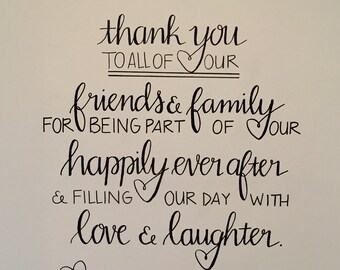 thank you
TO ALL OF OUR
friends & family
FOR BEING PART OF OUR
happily ever after
& FILLING OUR DAY WITH
love & laughter.